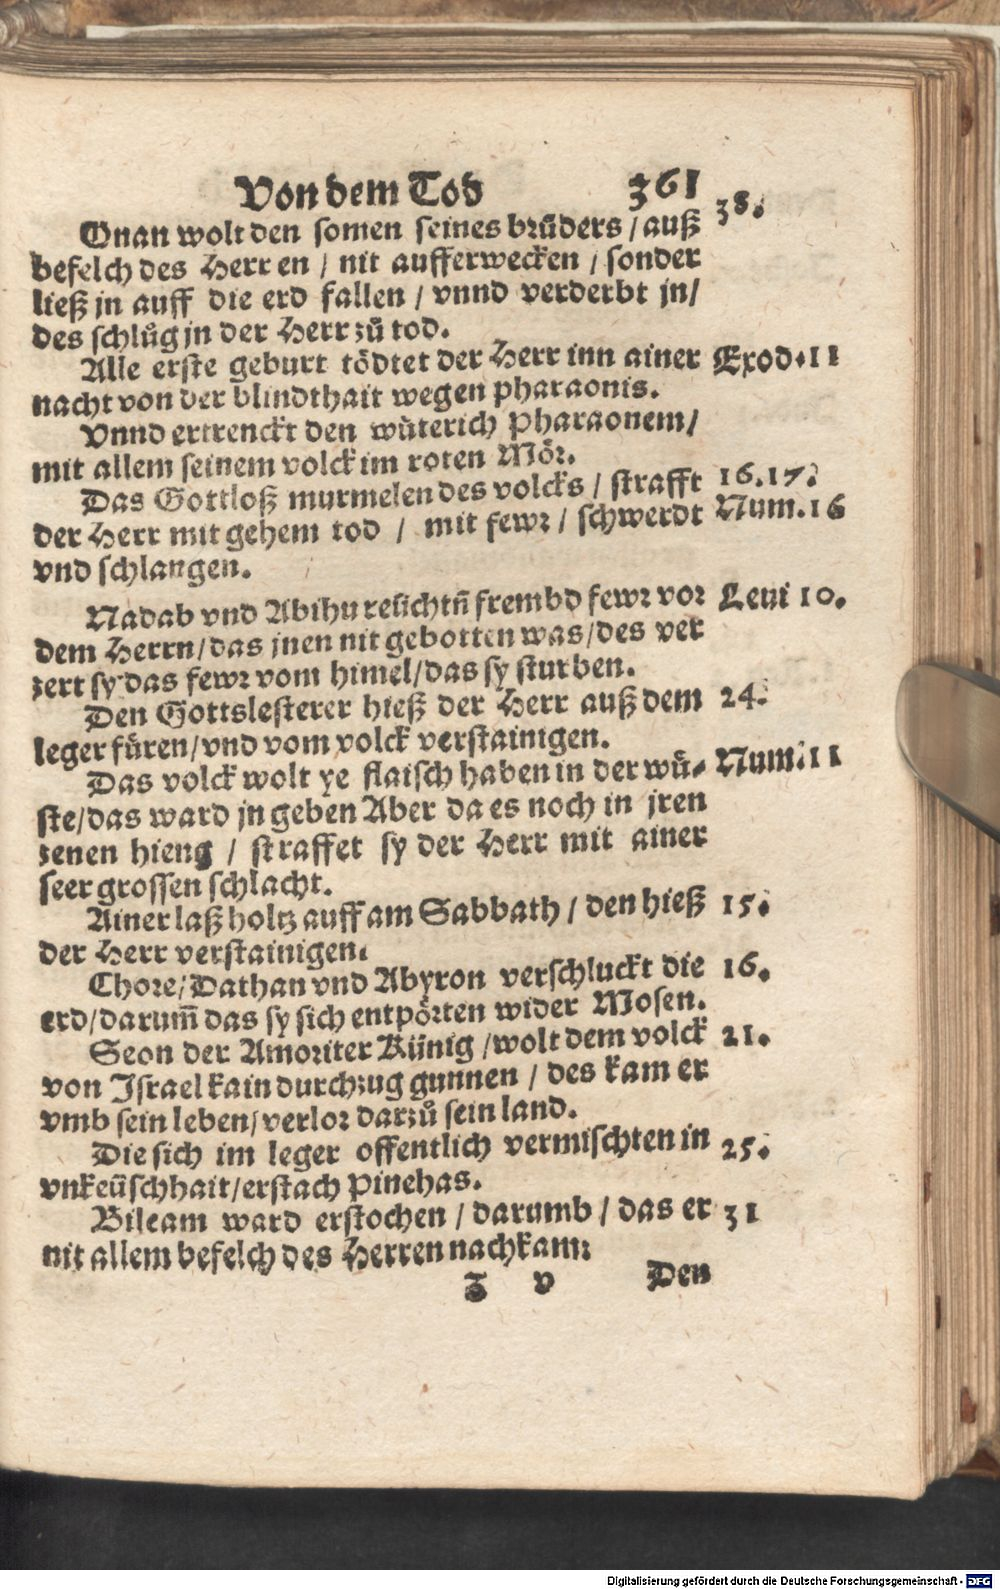 Von dem Tod 361
Onan wolt den somen seines brůders / auß 38.
befelch des Herren / nit aufferwecken / sonder
ließ jn auff die erd fallen / vnnd verderbt jn /
des schlůg jn der Herr zů tod.
Alle erste geburt tödtet der Herr inn ainer Exod. 11
nacht von der blindthait wegen Pharaonis.
Vnnd ertrenckt den wůterich Pharaonem /
mit allem seinem volck im roten Mör.
Das Gottloß murmelen des volcks / strafft 16. 17.
der Herr mit gehem tod / mit fewr / schwerdt Num. 16
vnd schlangen.
Nadab vnd Abihu reüchtñ frembd fewr vor Leui 10.
dem Herrn / das jnen nit gebotten was / des ver
zert sy das fewr vom himel / das sy sturben.
Den Gottslesterer hieß der Herr auß dem 24.
leger füren / vnd vom volck verstainigen.
Das volck wolt ye flaisch haben in der wů- Num. 11
ste / das ward jn geben Aber da es noch in jren
zenen hieng / straffet sy der Herr mit ainer
seer grossen schlacht.
Ainer laß holtz auff am Sabbath / den hieß 15.
der Herr verstainigen.
Chore / Dathan vnd Abyron verschluckt die 16.
erd / darum̃ das sy sich entpörten wider Mosen.
Seon der Amoriter Künig / wolt dem volck 21.
von Israel kain durchzug gunnen / des kam er
vmb sein leben / verlor darzů sein land.
Die sich im leger offentlich vermischten in 25.
vnkeüschhait / erstach Pinehas.
Bileam ward erstochen / darumb / das er 31
nit allem befelch des Herren nachkam:
Z v Den
Digitalisierung gefördert durch die Deutsche Forschungsgemeinschaft - DFG